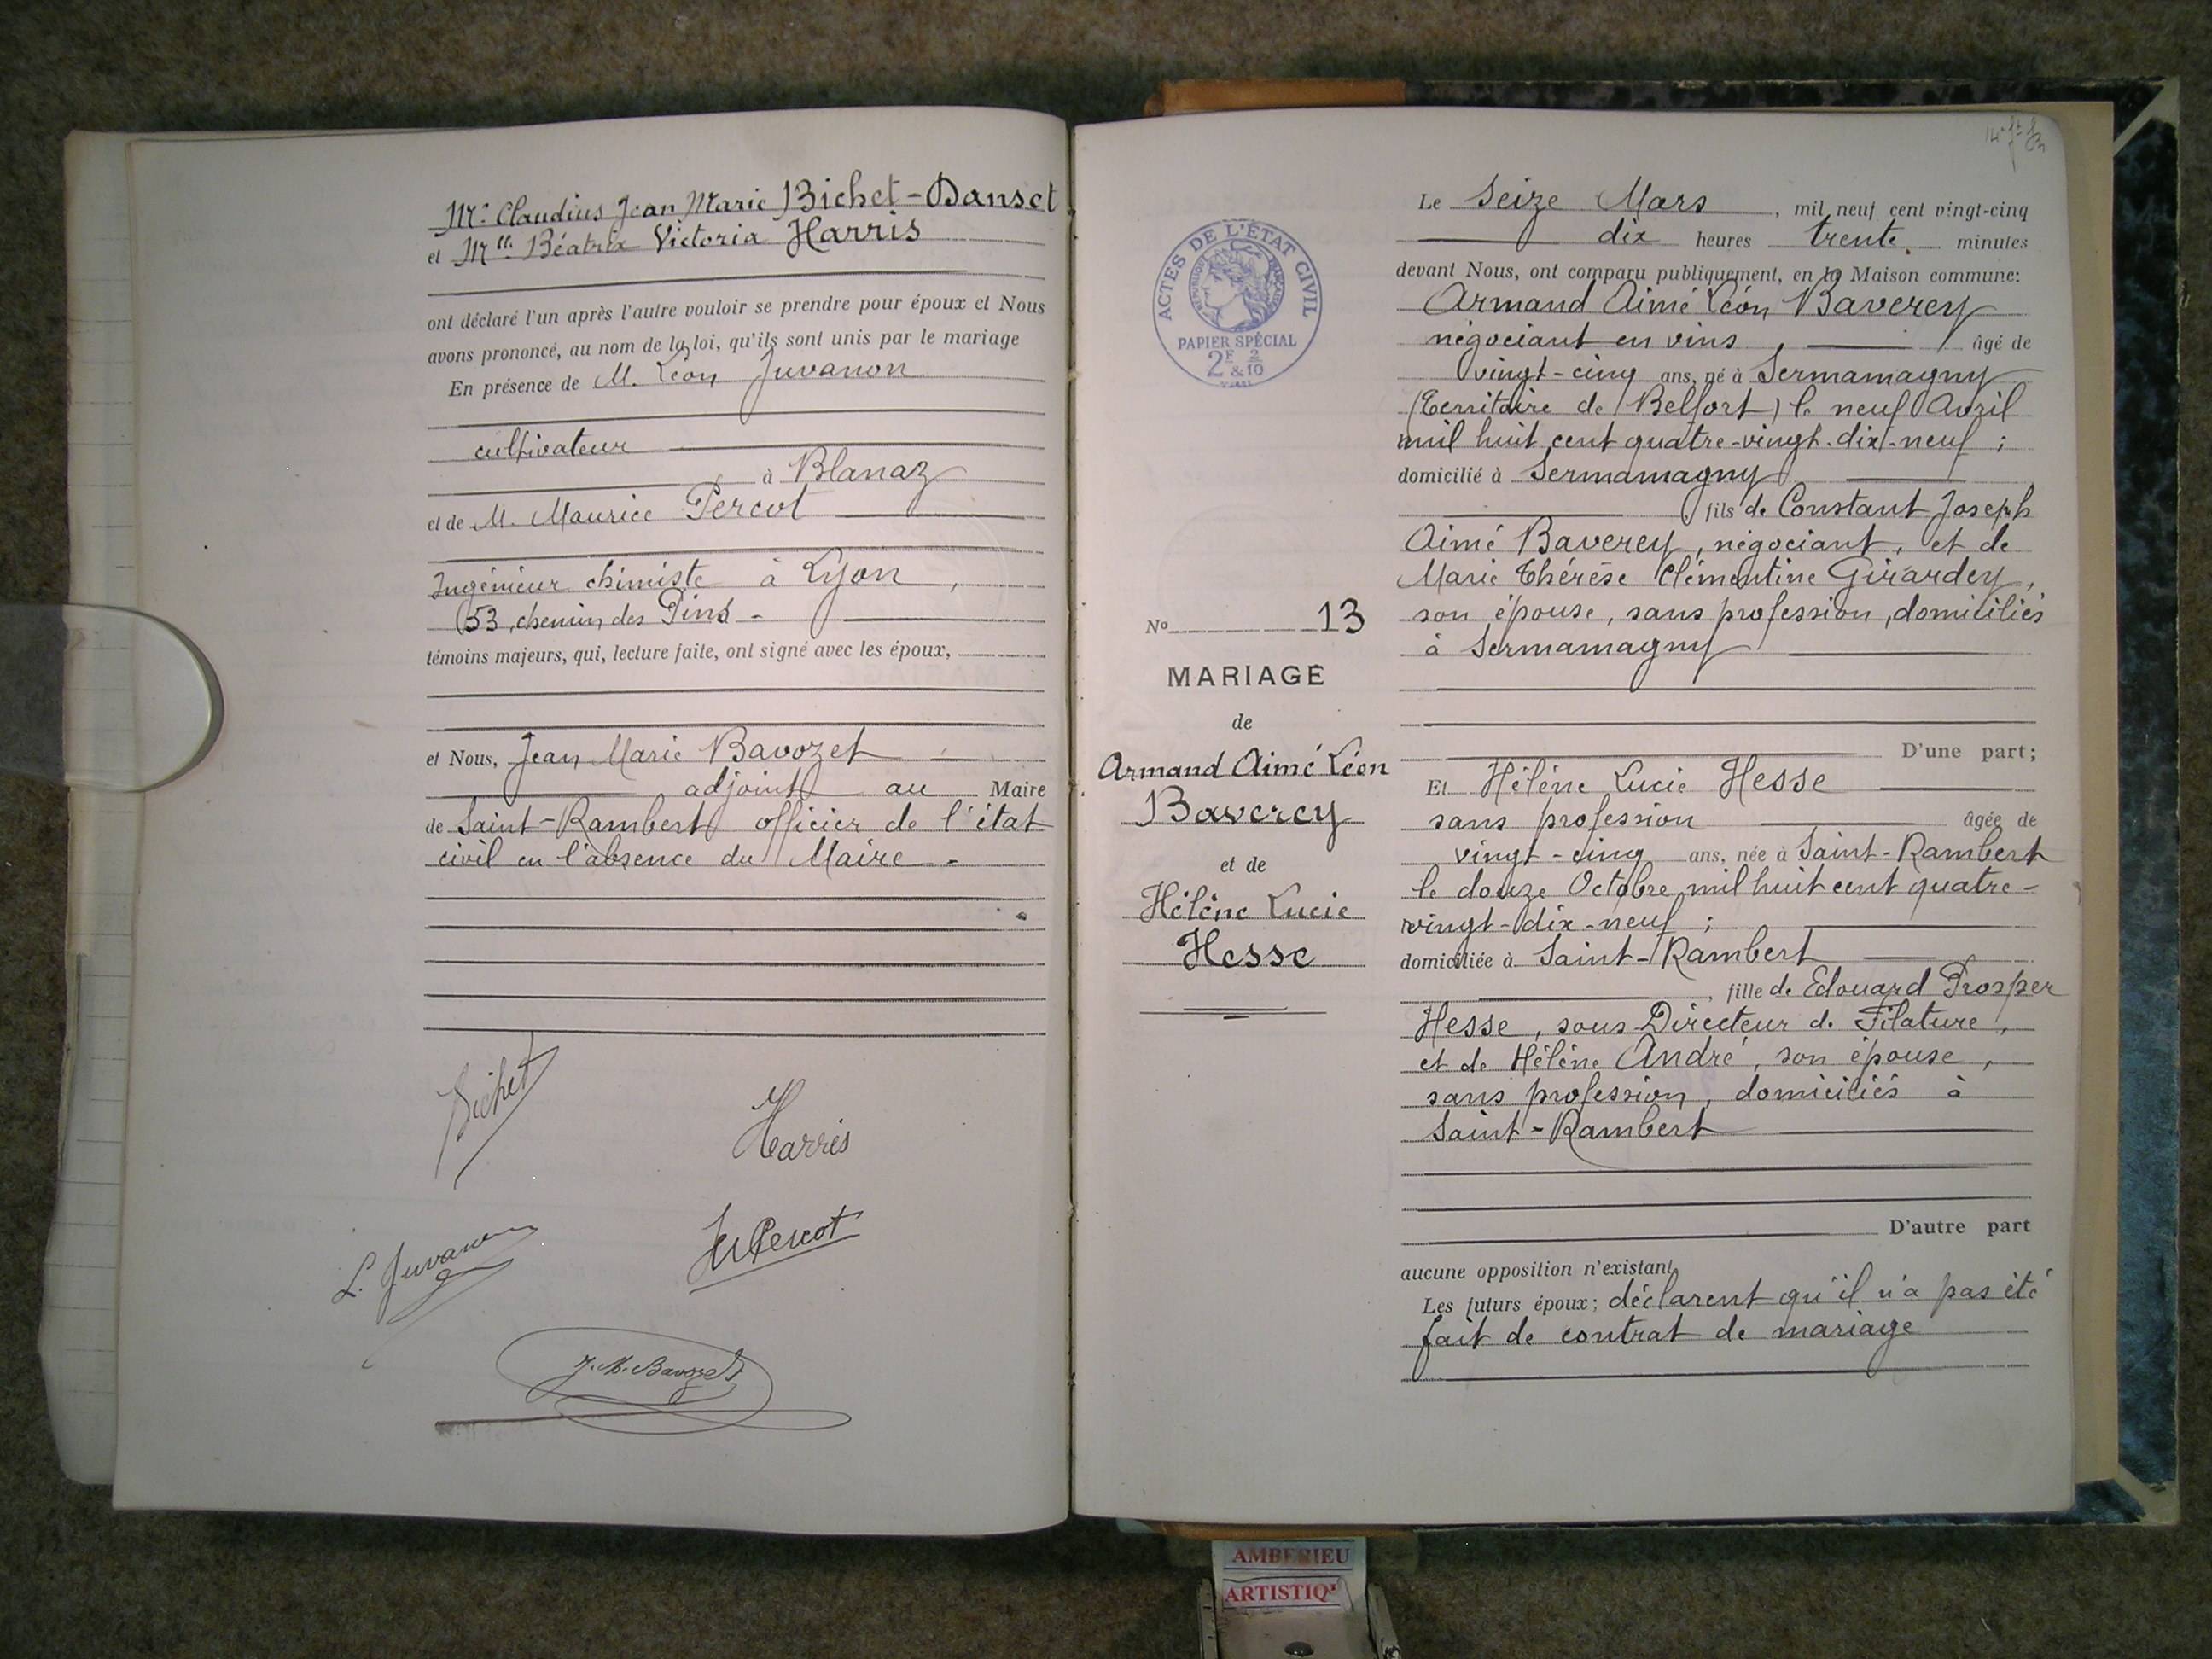 Mr. Claudius Jean Marie Bichet-Danset
et Mlle. Béatrix Victoria Harris
ont déclaré l'un après l'autre vouloir se prendre pour époux et Nous
avons prononcé, au nom de la loi, qu'ils sont unis par le mariage
En présence de M. Léon Juvanon
cultivateur
à Blanaz
et de M. Maurice Percot
Ingénieur chimiste à Lyon,
53, chemin des Pins -
témoins majeurs, qui, lecture faite, ont signé avec les époux,
et Nous, Jean Marie Bavozet
adjoint au Maire
de Saint-Rambert officier de l'état
civil en l'absence du Maire -
Bichet
Harris
L. Juvanon
Percot
J. M. Bavozet
ACTES DE L'ÉTAT CIVIL
RÉPUBLIQUE FRANÇAISE
PAPIER SPÉCIAL
2F & 2/10
No 13
MARIAGE
de
Armand Aimé Léon
Baverey
et de
Hélène Lucie
Hesse
Le Seize Mars, mil neuf cent vingt-cinq
dix heures trente. minutes
devant Nous, ont comparu publiquement, en la Maison commune:
Armand Aimé Léon Baverey
négociant en vins, âgé de
vingt-cinq ans, né à Sermamagny
(Territoire de Belfort) le neuf Avril
mil huit cent quatre-vingt-dix-neuf;
domicilié à Sermamagny
fils de Constant Joseph
Aimé Baverey, négociant, et de
Marie Thérèse Clémentine Girardey,
son épouse, sans profession, domiciliés
à Sermamagny
D'une part;
Et Hélène Lucie Hesse
sans profession âgée de
vingt-cinq ans, née à Saint-Rambert
le douze Octobre mil huit cent quatre-
vingt-dix-neuf;
domiciliée à Saint-Rambert
, fille de Edouard Prosper
Hesse, sous-Directeur de Filature,
et de Hélène André, son épouse,
sans profession, domiciliés à
Saint-Rambert
D'autre part
aucune opposition n'existant,
Les futurs époux; déclarent qu'il n'a pas été
fait de contrat de mariage
AMBERIEU
ARTISTIQ